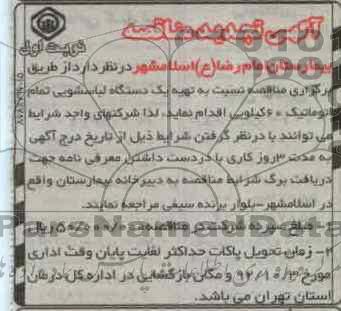 آگهی تجدید مناقصه
نوبت اول
بیمارستان امام رضا (ع) اسلامشهر در نظر دارد از طریق
برگزاری مناقصه نسبت به تهیه یک دستگاه لباسشویی تمام
اتوماتیک ۶۰ کیلویی اقدام نماید، لذا شرکتهای واجد شرایط
می توانند با در نظر گرفتن شرایط ذیل از تاریخ درج آگهی
به مدت ۳ روز کاری با در دست داشتن معرفی نامه جهت
دریافت برگ شرایط مناقصه به دبیرخانه بیمارستان واقع
در اسلامشهر-بلوار برنده سیفی مراجعه نمایند.
مبلغ سپرده شرکت در مناقصه ریال
۲- زمان تحویل پاکات حداکثر لغایت پایان وقت اداری
مورخ و مکان بازگشایی در اداره کل درمان
استان تهران می باشد.